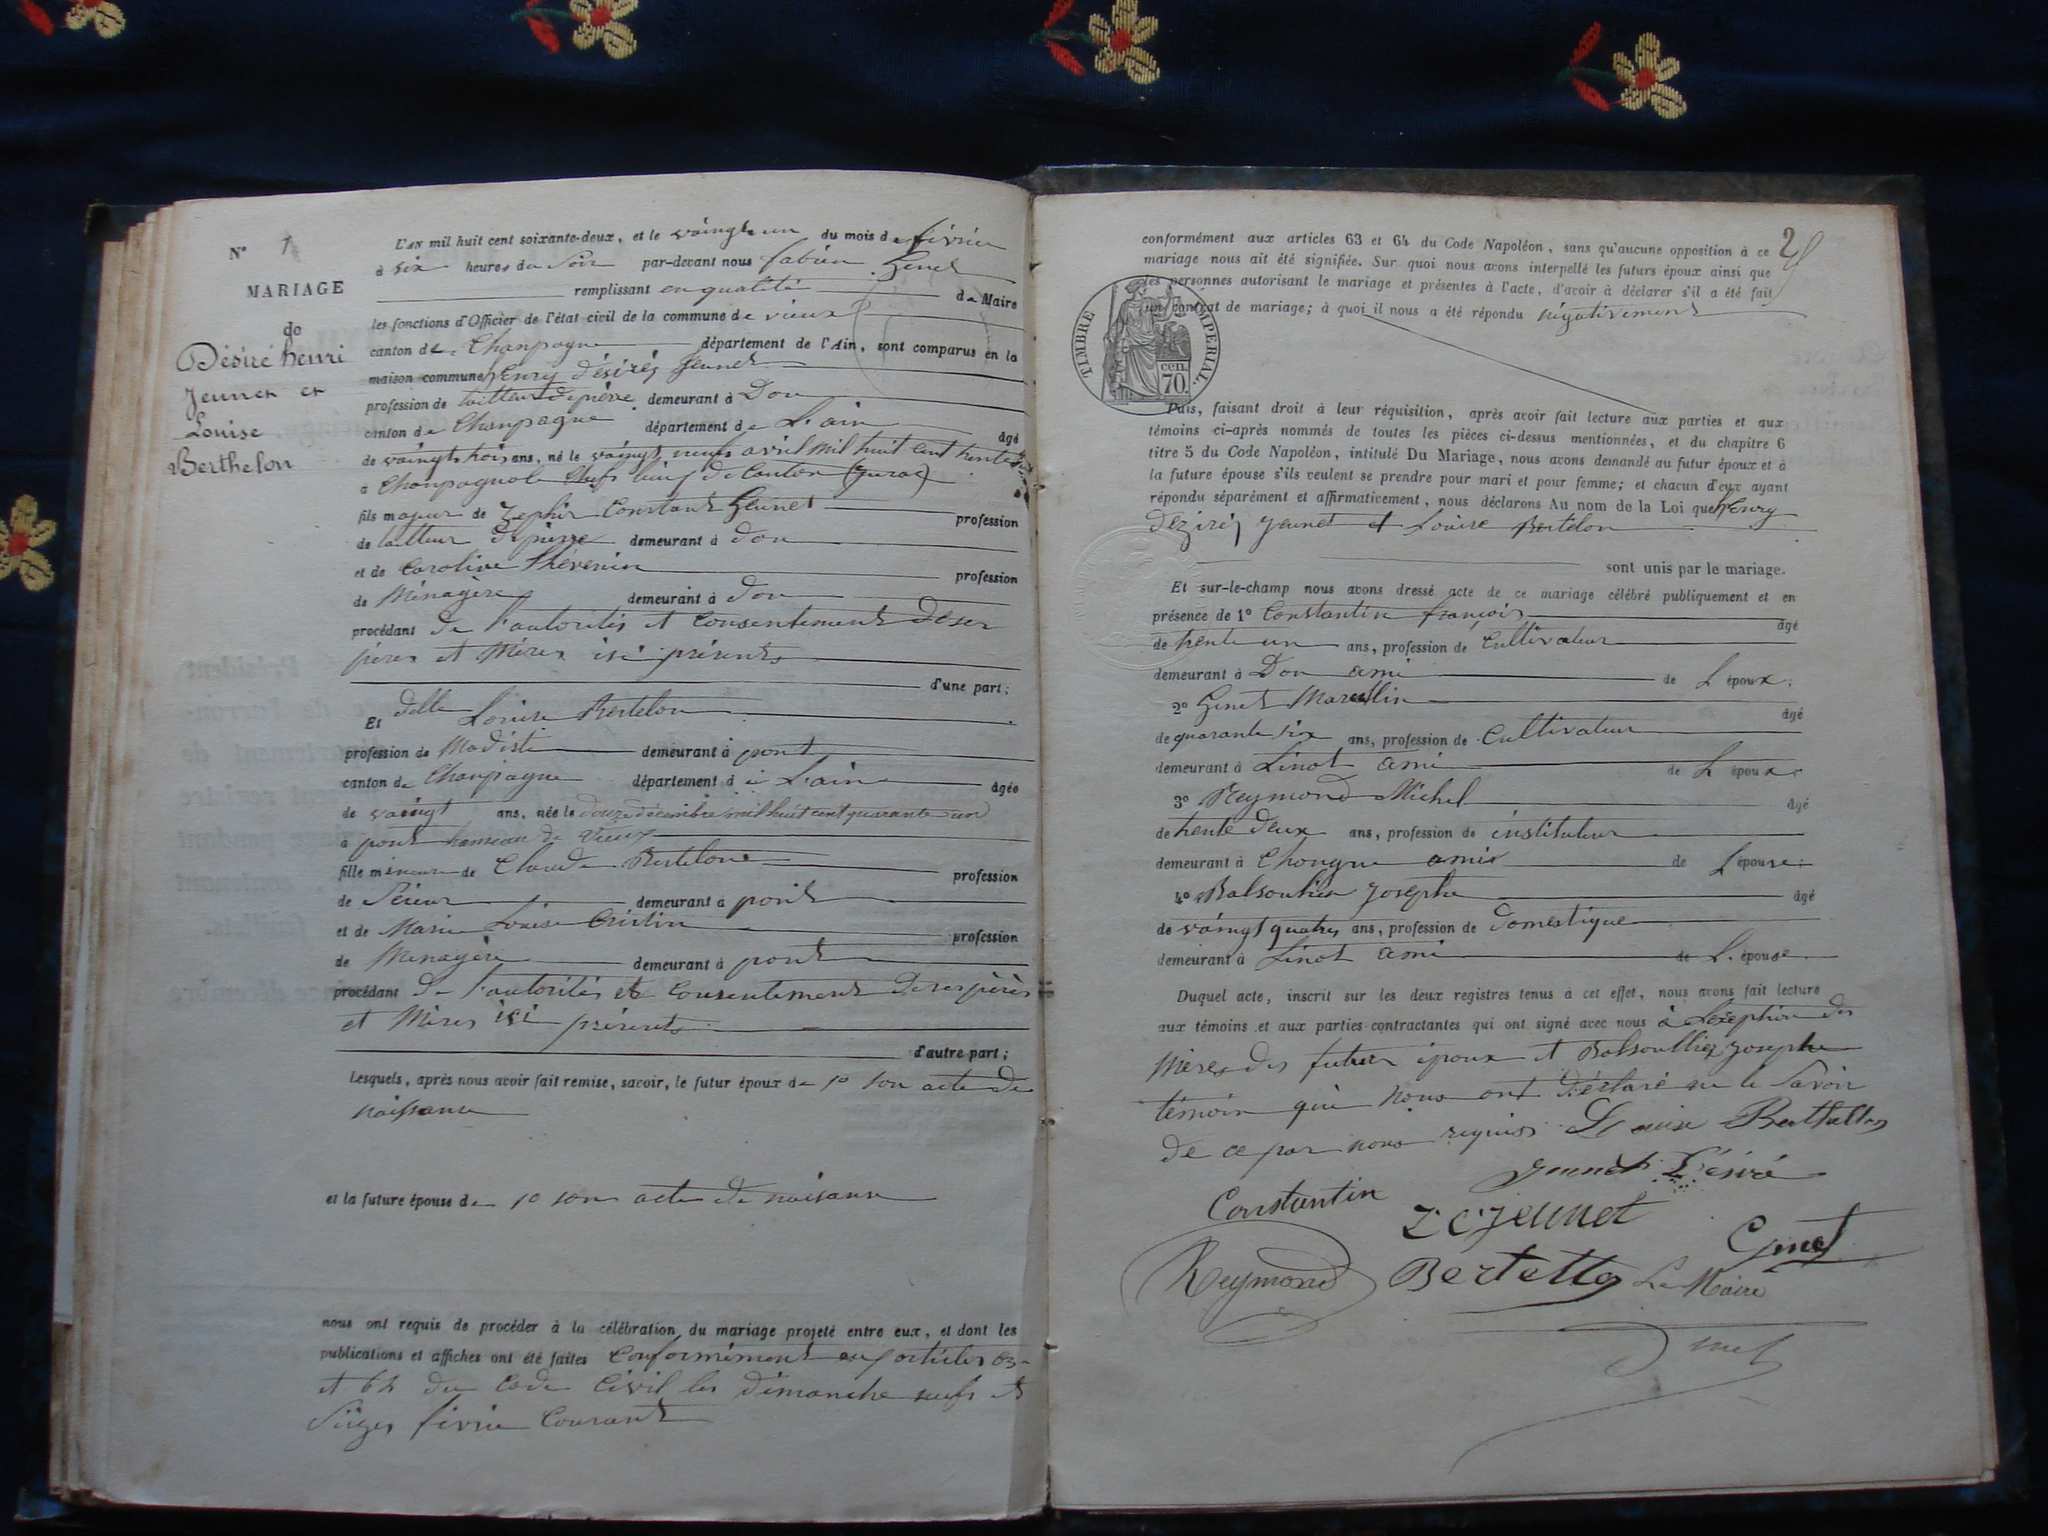 N° 1
MARIAGE
de
Désiré henri
Jeunet et
Louise
Berthelon
L'AN mil huit cent soixante-deux, et le vaingt un du mois de février
à six heures du Soir par-devant nous fabien Genet
remplissant en qualité de Maire
les fonctions d'Officier de l'état civil de la commune de vieux
canton de Chanpagne département de l'Ain, sont comparus en la
maison commune henry désirés Jeunet
profession de tailleur de pierre demeurant à Don
canton de Champagne département de L'ain âgé
de vaingt trois ans, né le vaingt neufs avril mil huit cent trente
à Chanpagnole Chefs lieus de Canton (Jura)
fils majeur de Zephir Constant Geunet profession
de tailleur de pierre demeurant à don
et de Caroline thévenin profession
de Ménagère demeurant à don
procédant de l'autorités et Consentement de ses
pères et Mères ici présents
d'une part;
Et delle Louise Bertelon
profession de Modiste demeurant à pont
canton de Chanpagne département de L'ain âgée
de vaingt ans, née le douze décembre mil huit cent quarante un
à pont hameau de Vieux
fille mineure de Claude Bertelone profession
de Sieur demeurant à pont
et de Marie Louise profession
de Menagère demeurant à pont
procédant de l'autorités et Consentement de ses pères
et Mères ici présents
d'autre part;
Lesquels, après nous avoir fait remise, savoir, le futur époux de 1° son acte de
naissance
et la future épouse de 1° son acte de naisance
nous ont requis de procéder à la célébration du mariage projeté entre eux, et dont les
publications et affiches ont été faites Conformément aux articles 63
et 64 du Code Civil les dimanche neufs et
Sièzes février Courant
2
conformément aux articles 63 et 64 du Code Napoléon, sans qu'aucune opposition à ce
mariage nous ait été signifiée. Sur quoi nous avons interpellé les futurs époux ainsi que
les personnes autorisant le mariage et présentes à l'acte, d'avoir à déclarer s'il a été fait
un contrat de mariage; à quoi il nous a été répondu négativement
TIMBRE IMPERIAL.
70 cen.
Puis, faisant droit à leur réquisition, après avoir fait lecture aux parties et aux
témoins ci-après nommés de toutes les pièces ci-dessus mentionnées, et du chapitre 6
titre 5 du Code Napoléon, intitulé Du Mariage, nous avons demandé au futur époux et à
la future épouse s'ils veulent se prendre pour mari et pour femme; et chacun d'eux ayant
répondu séparément et affirmativement, nous déclarons Au nom de la Loi que henry
dezirés Jeunet et Louise Bertelon
sont unis par le mariage.
Et sur-le-champ nous avons dressé acte de ce mariage célébré publiquement et en
présence de 1° Constantin françois âgé
de trente un ans, profession de Cultivateur
demeurant à Don ami de L'époux;
2° Genet Marcellin âgé
de quarante six ans, profession de Cultivateur
demeurant à Linot ami de L'époux
3° Reymond Michel âgé
de trente deux ans, profession de instituteur
demeurant à Chongne amis de L'épouse;
4° Balsoulier Josephe âgé
de vaingt quatres ans, profession de domestique
demeurant à Linot ami de L'épouse
Duquel acte, inscrit sur les deux registres tenus à cet effet, nous avons fait lecture
aux témoins et aux parties contractantes qui ont signé avec nous à L'exeption des
Mères des futurs époux et Balsoullier Josephe
témoin qui nous ont déclaré ne le Savoir
de ce par nous requis Louise Berthelon
Jeunet Désiré
Constantin
Z C Jeunet
Genet
Reymond
Le Maire
Genet